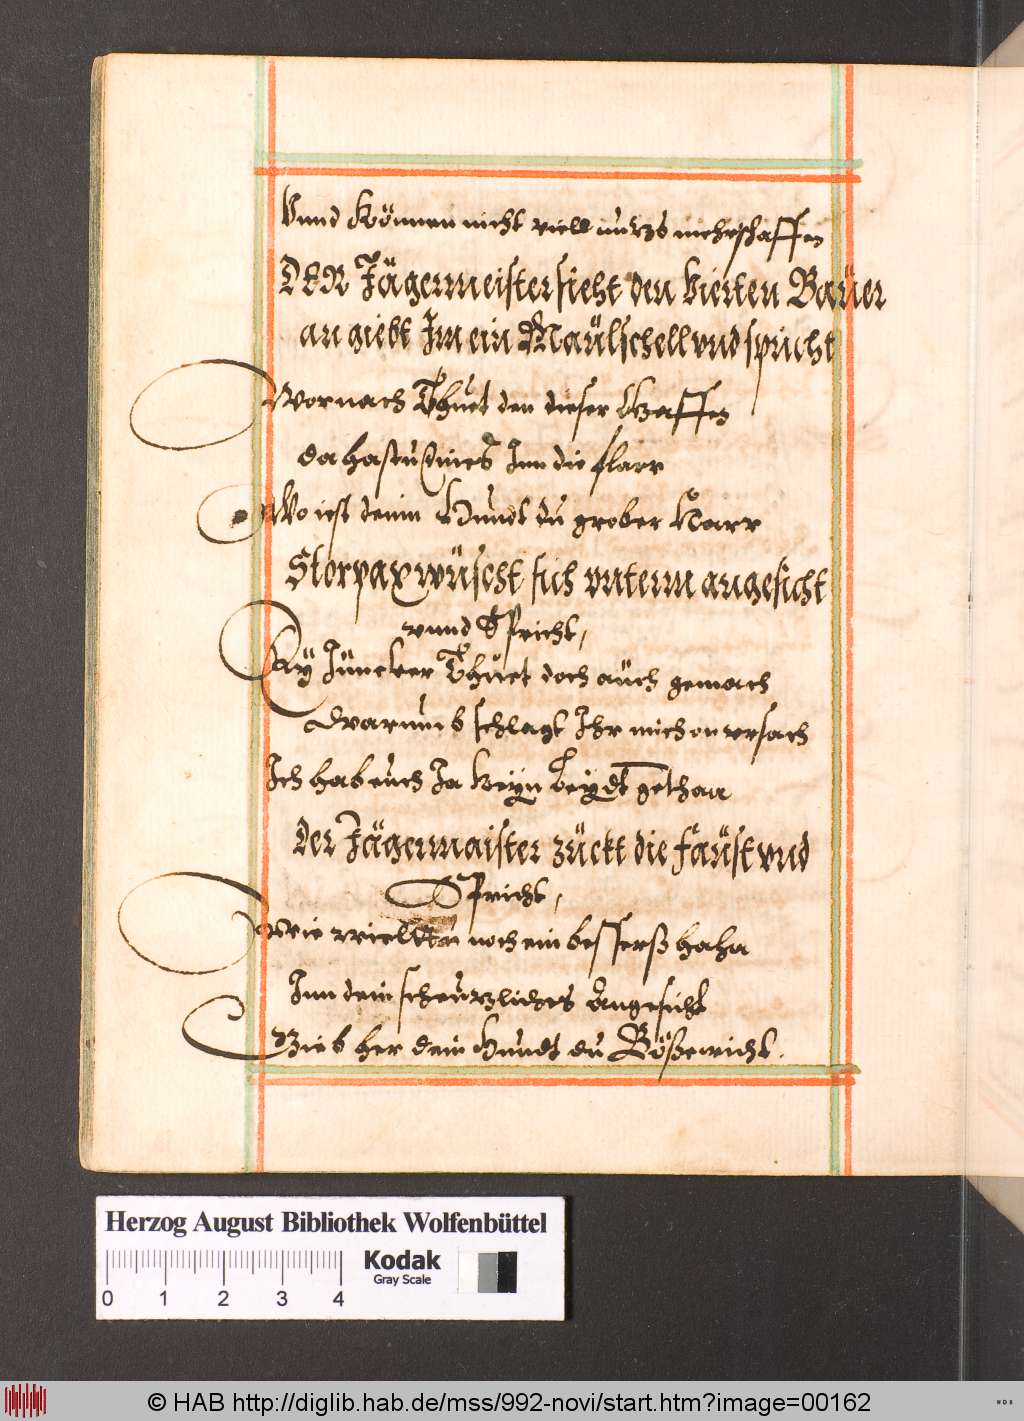 Vnnd Können nicht viell nützs mehr schaffen
DER Jägermeister sieht den vierten Baüer
an giebt Jm ein Maülschell vnd spricht
Wornach Thuet den dieser Gaffen
da hastu eines Jnn die flarr
Wo ist denn Hundt du grober Narr
Storpax wüscht sich vnterm angesicht
vnnd Spricht,
Aÿ Jüncker Thüet doch auch gemach
Warumb schlagt Ihr mich on vrsach
Ich hab euch Ja keyn Leydt gethaa
Der Jägermaister zückt die faüst vnd
Spricht,
Wie wieltu noch ein besserß haha
Jnn dein scheutzliches Angesicht
Gieb her dein Hundt du Bößewicht.
Herzog August Bibliothek Wolfenbüttel
0 1 2 3 4
Kodak
Gray Scale
© HAB http://diglib.hab.de/mss/992-novi/start.htm?image=00162